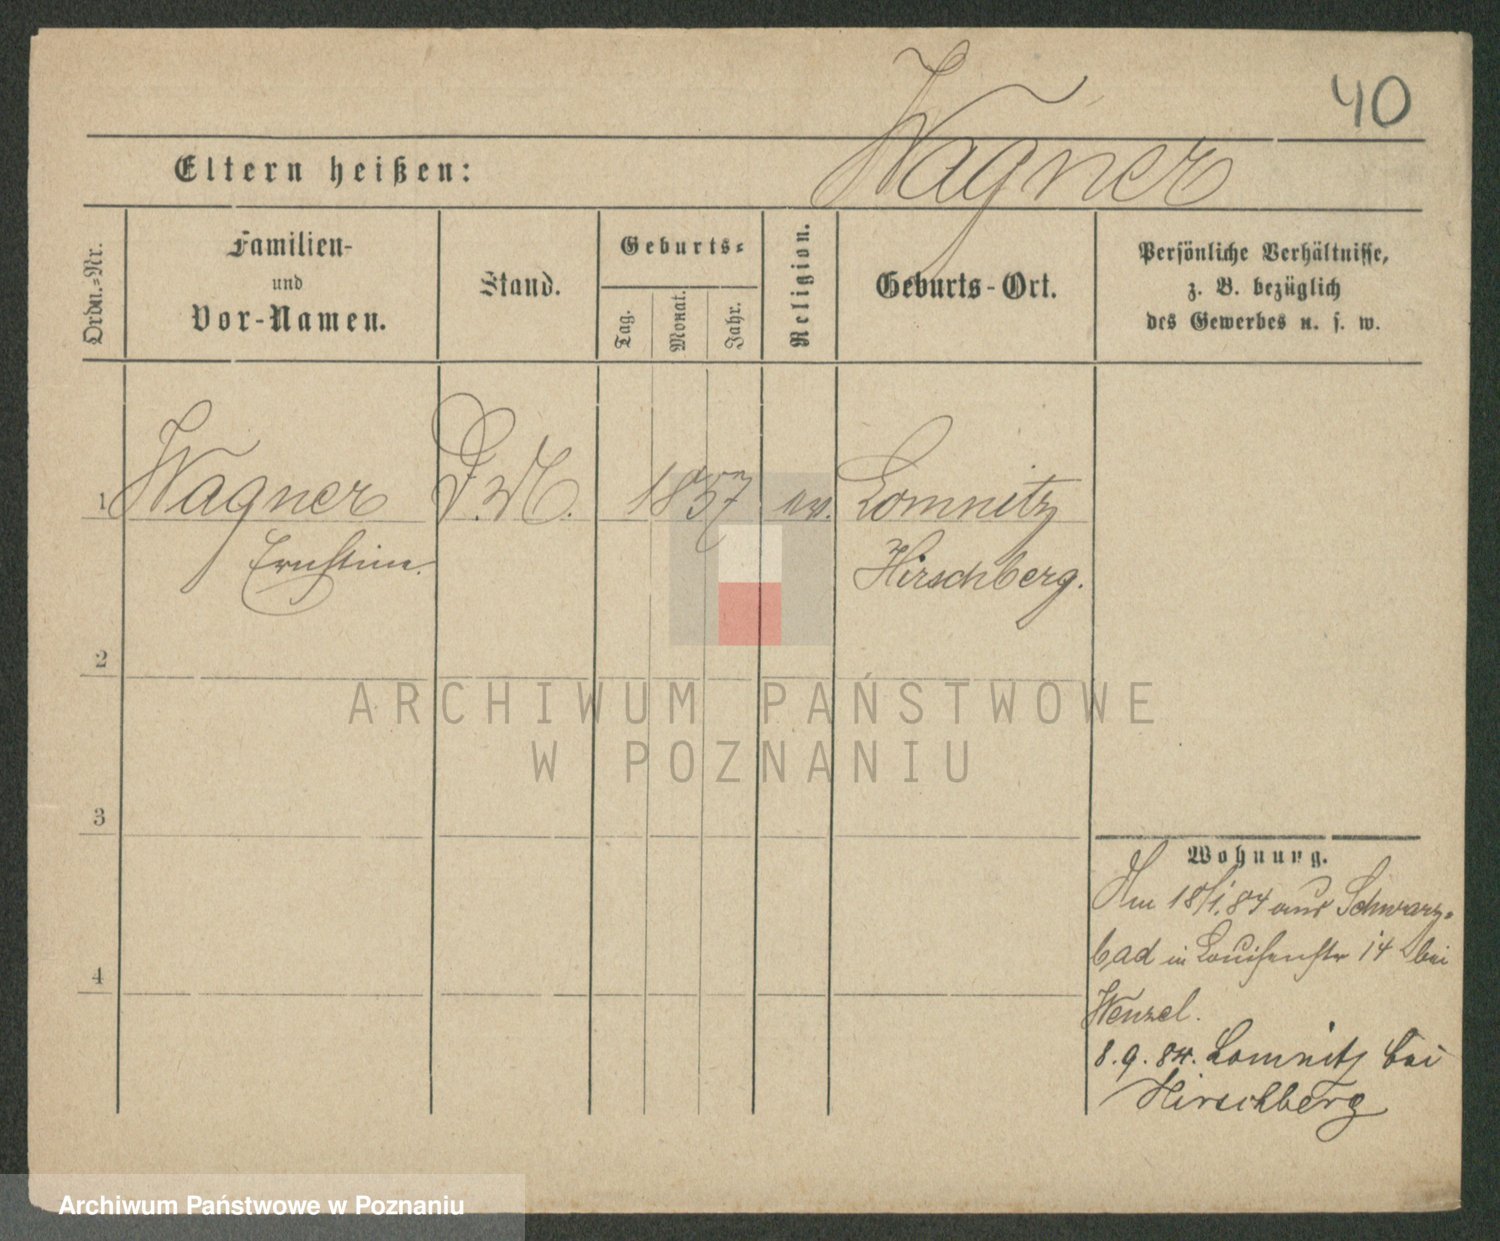 40
Wagner
Eltern heißen:
Ordn.-Nr.
Familien-
und
Vor-Namen.
Stand.
Geburts-
Tag.
Monat.
Jahr.
Religion.
Geburts-Ort.
Persönliche Verhältnisse,
z. B. bezüglich
des Gewerbes u. s. w.
1 Wagner D.M. 1857 ev. Lomnitz
Ernstine. Hirschberg.
2
ARCHIWUM PAŃSTWOWE
W POZNANIU
3
Wohnung.
Am 18/1.84 aus Schwarz-
bad in Louisenstr 14 bei
4
Wenzel.
8.9.84. Lomnitz bei
Hirschberg
Archiwum Państwowe w Poznaniu